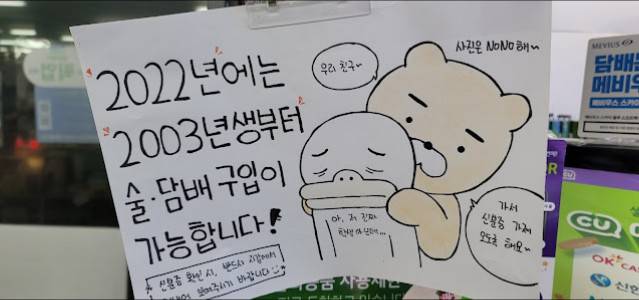 2022년에는
2003년생부터
술·담배 구입이
가능합니다!
신분증 확인 시, 반드시 지갑에서
보여주시기 바랍니다
우리 친구~
사진은 NoNo해~
아, 저 진짜
학생 아닌데...
가서
신분증 가져
오도록 해요~
MEVIUS
담배는
메비우
CU
OK